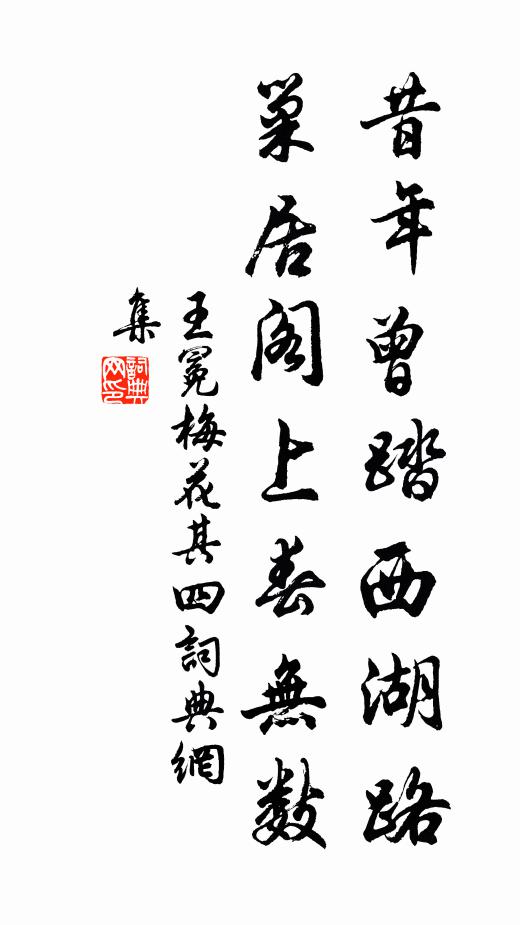 昔年曾踏西湖路
巢居阁上春無数
王冕梅花其四詞典網
集
詞典網印